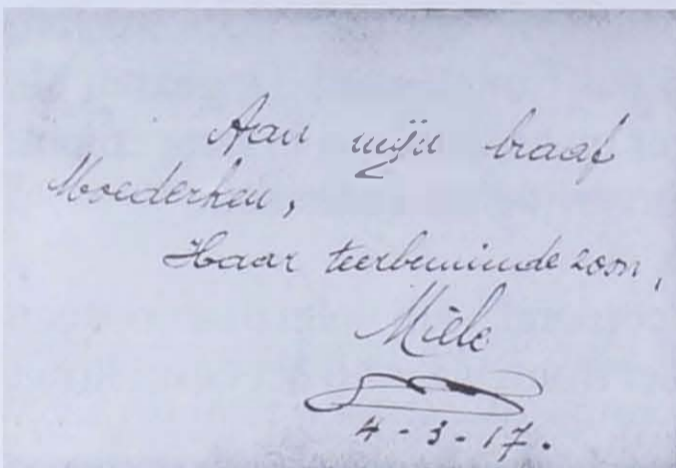 Aan mijn braaf
Moederken,
Haar teerbeminde zoon,
Miele
4-3-17.